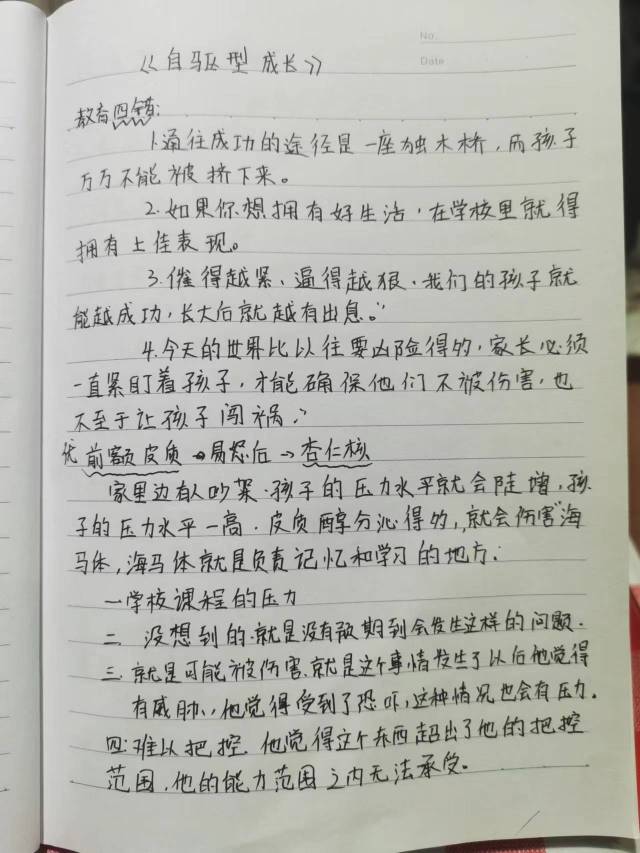 No.
Date
《自驱型成长》
教育四错:
1.通往成功的途径是一座独木桥,而孩子
万万不能被挤下来。
2.如果你想拥有好生活,在学校里就得
拥有上佳表现。
3.催得越紧、逼得越狠,我们的孩子就
能越成功,长大后就越有出息。
4.今天的世界比以往要凶险得多,家长必须
一直紧盯着孩子,才能确保他们不被伤害,也
不至于让孩子闯祸。
前额皮质→易怒后→杏仁核
家里边有人吵架.孩子的压力水平就会陡增,孩
子的压力水平一高.皮质醇分泌得多,就会伤害海
马体,海马体就是负责记忆和学习的地方.
一学校课程的压力
二 没想到的.就是没有预期到会发生这样的问题.
三.就是可能被伤害.就是这个事情发生了以后他觉得
有威胁,他觉得受到了恐吓,这种情况也会有压力.
四.难以把控.他觉得这个东西超出了他的把控
范围,他的能力范围之内无法承受。